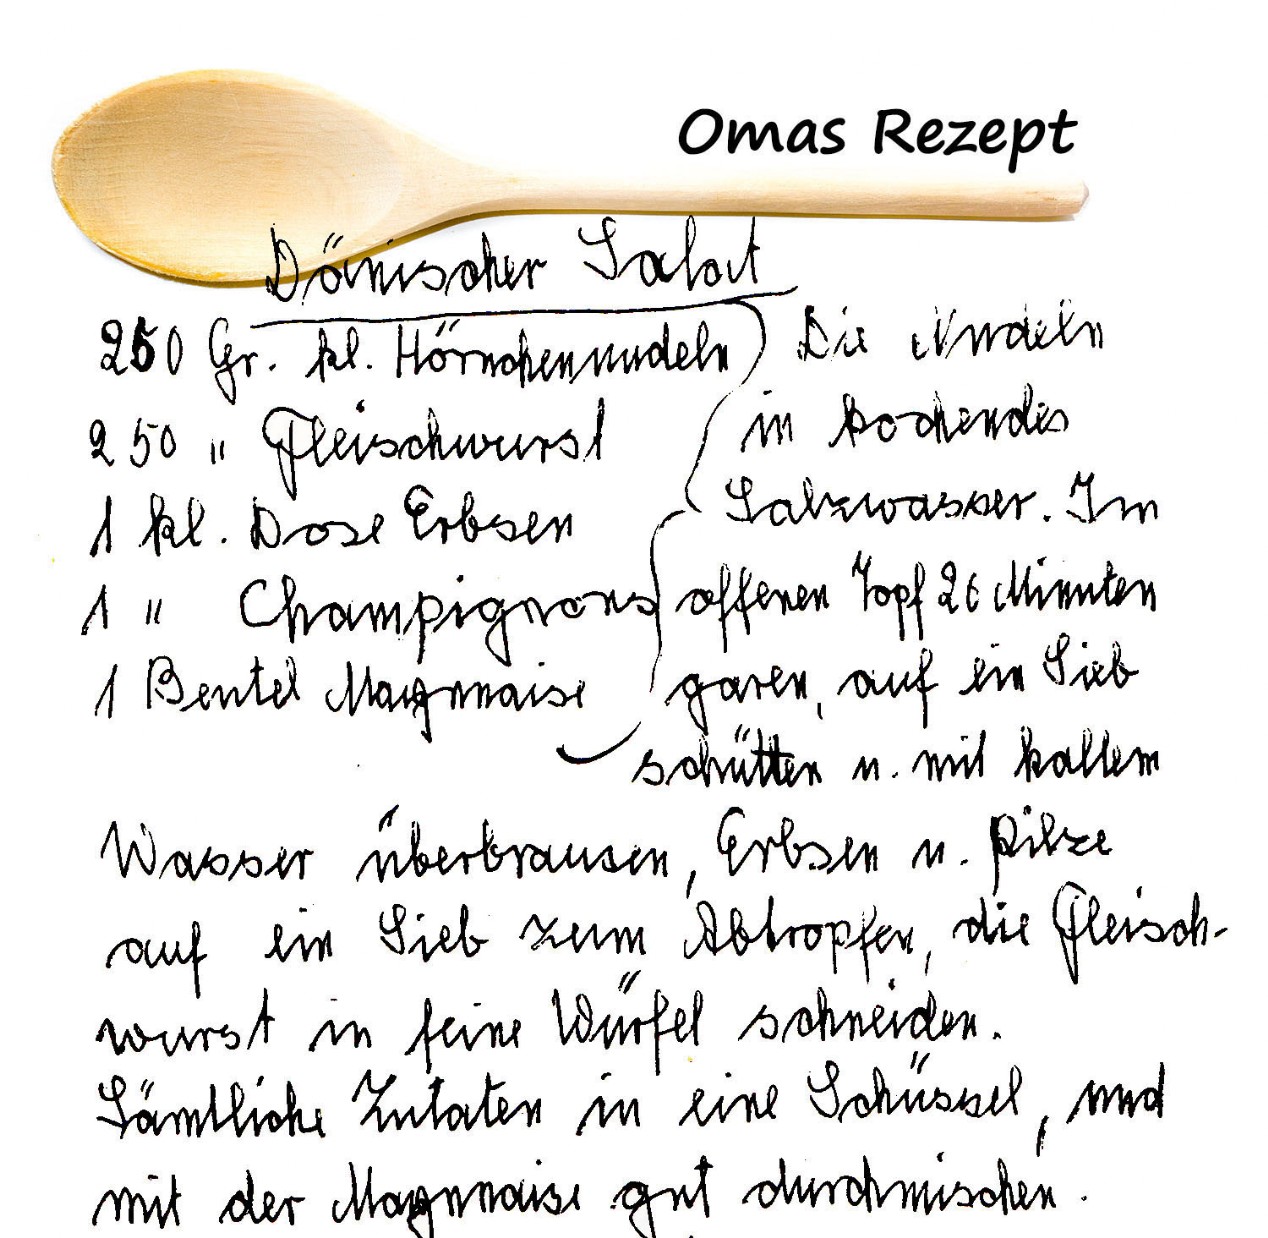 Omas Rezept
Dänischer Salat
250 Gr. kl. Hörnchennudeln
250 " Fleischwurst
1 kl. Dose Erbsen
1 " Champignons
1 Beutel Mayonnaise
Die Nudeln
in kochendes
Salzwasser. Im
offenen Topf Minuten
garen, auf ein Sieb
schütten u. mit kaltem
Wasser überbrausen, Erbsen u. Pilze
auf ein Sieb zum Abtropfen, die Fleisch-
wurst in feine Würfel schneiden.
Sämtliche Zutaten in eine Schüssel, und
mit der Mayonnaise gut durchmischen.